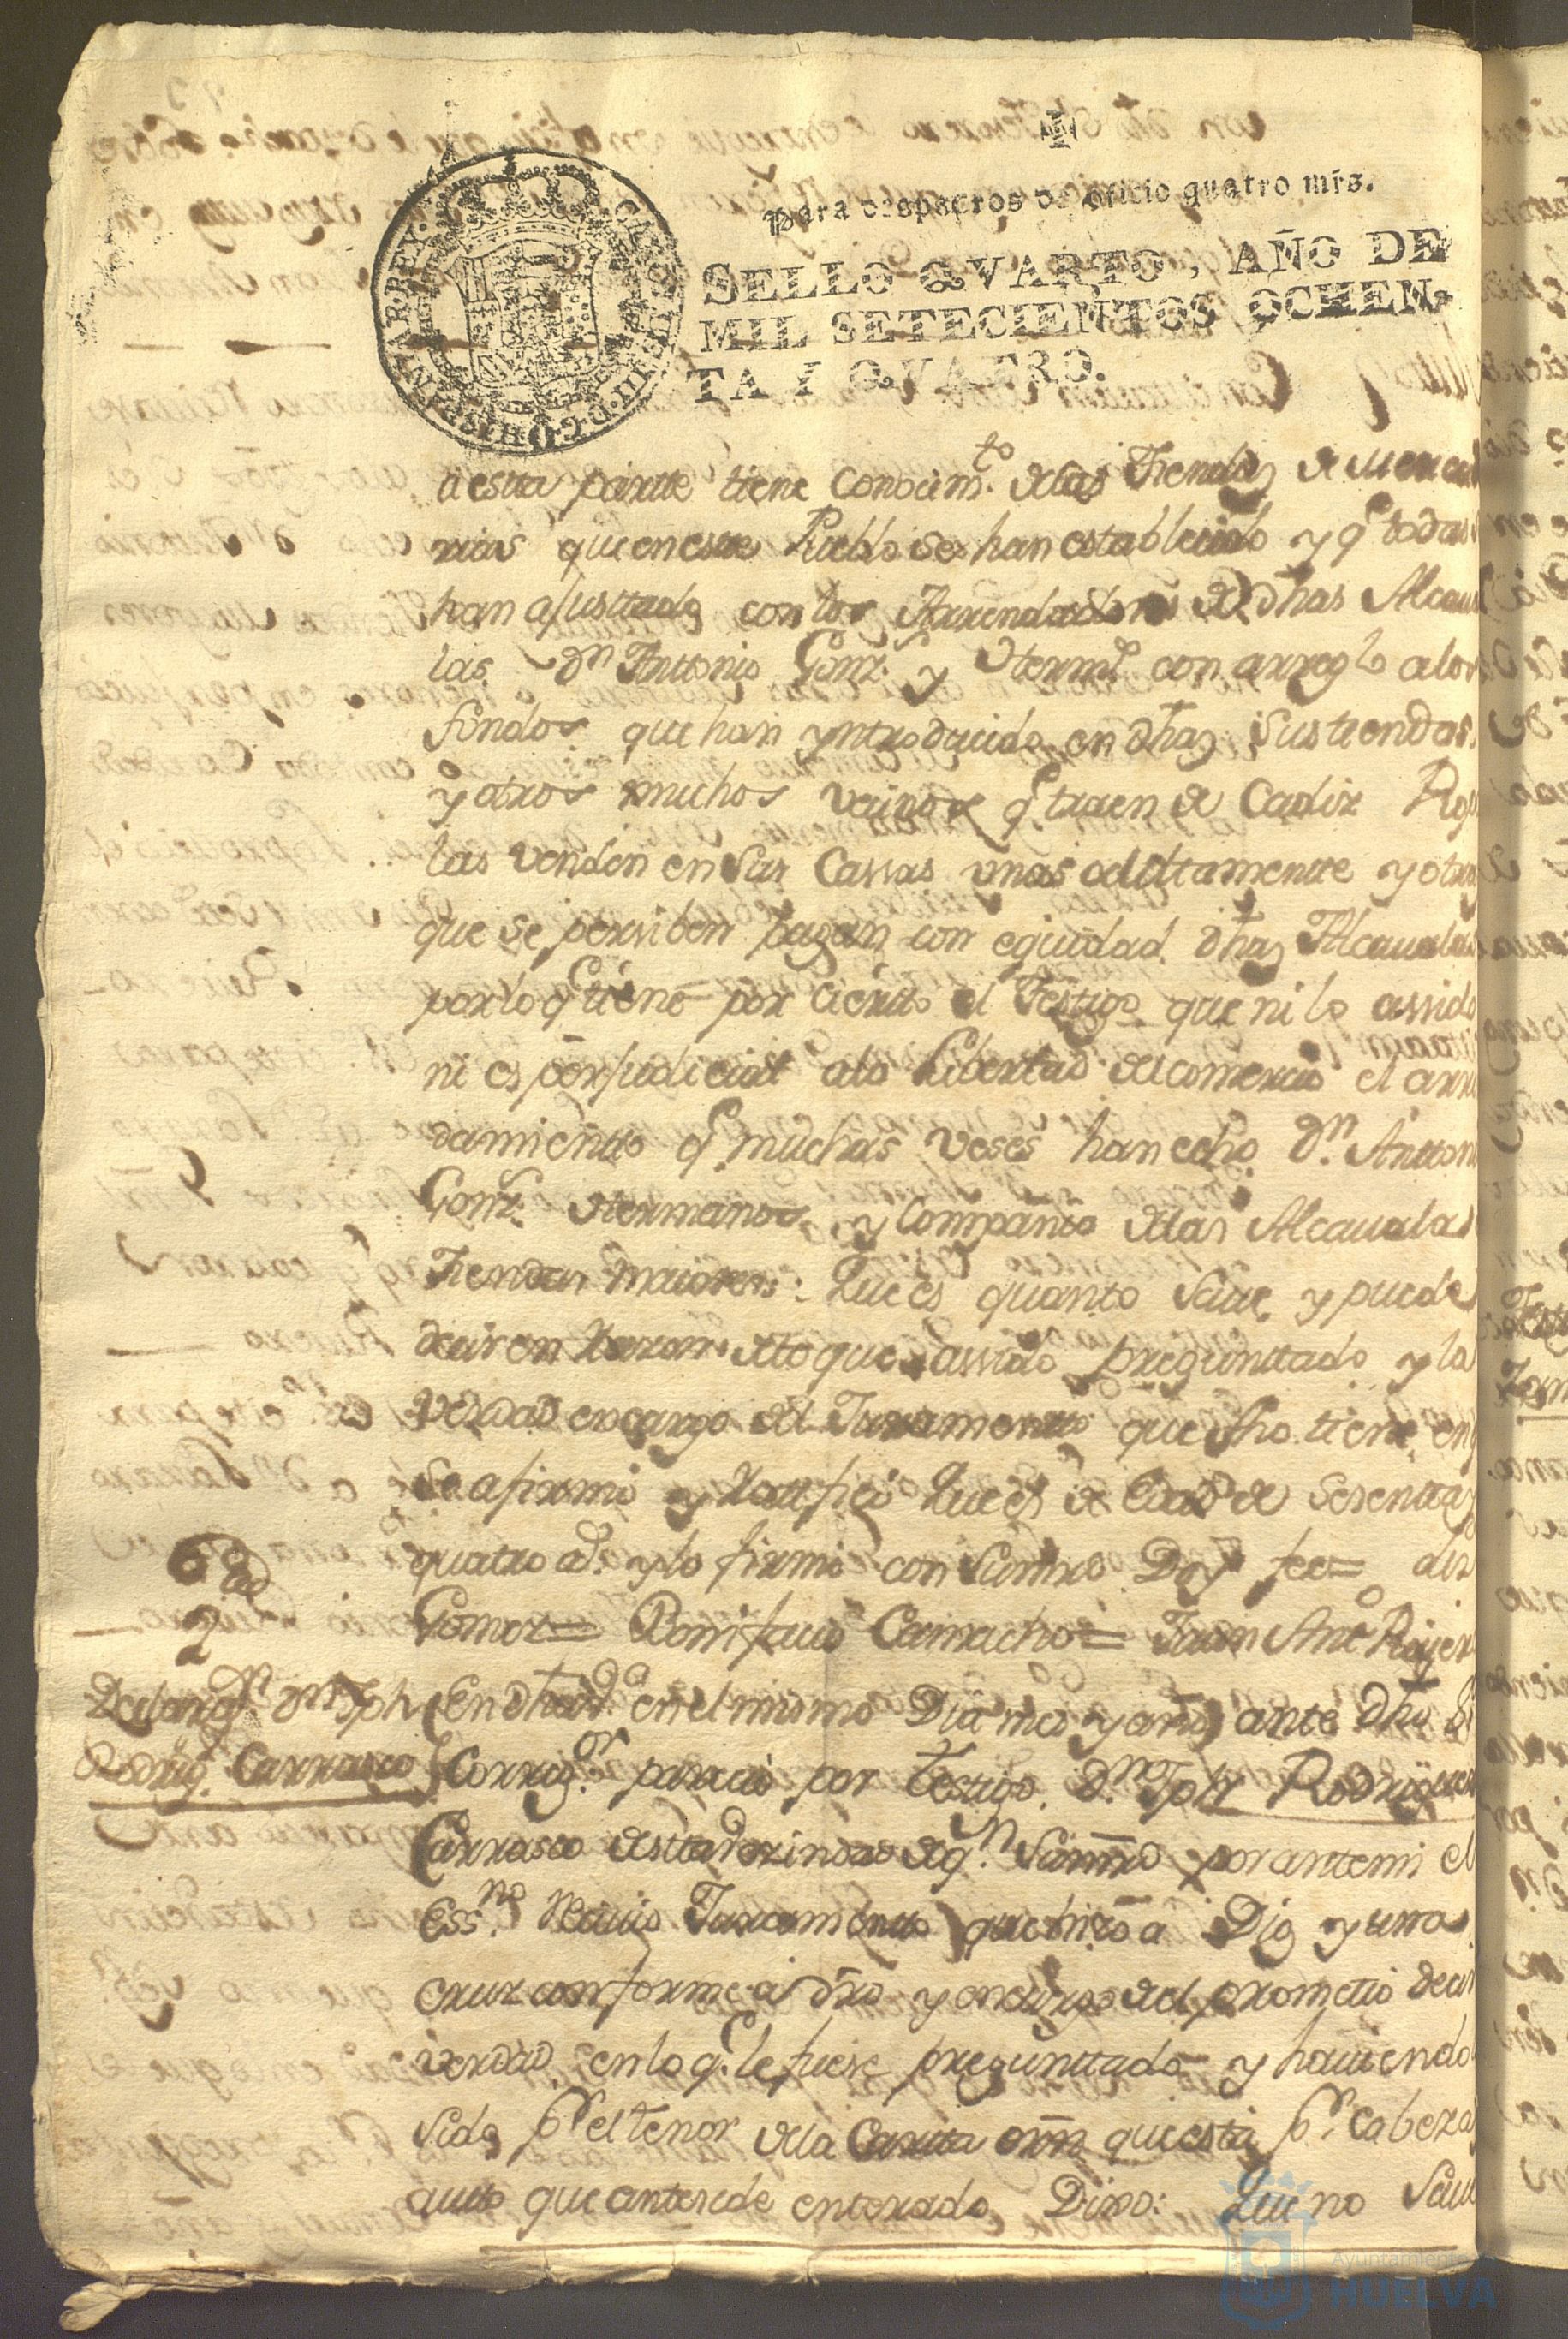 Para despachos de oficio quatro mrs.
SELLO QVARTO, AÑO DE
MIL SETECIENTOS OCHEN-
TA Y QVATRO.
a esta partte tiene conocimto. delas Tiendas de
rias que en este Pueblo se han establecido y qe todas
han ajusttado con los Arrendadores de dhas Alcaua
las dn Anttonio Gonz. y Herms. con arreglo a los
fondos que han yntroducido en dhas sus tiendas.
y otros muchos vecinos qe traen de Cadiz
las venden en sus Cassas unas ocultamentte y otras
que se perciben pagan con equidad dhas Alcaualas
por lo qe tiene por cierto el Testigo que ni lo assido
ni es perjudicial ala Libertad del comercio el arren
damientto qe muchas veses han echo Dn. Antton
Gonz. Hermanos y Compañia delas Alcaualas
Tiendas maiores: Que es quanto saue y puede
decir en Razon delo que assido preguntado y la
verdad en cargo del Juramentto que fho tiene en q
se afirmó y Ratificó Que es de Edad de Sesentta y
quatro as. y lo firmó con Su mrd Doy fee=
Gomez= Bonifacio Camacho= Juan Anto
6
2
Declaraon. Dn Jph
Rodrig. Carrasco
En dha Va. en el mismo Dia mes y año ante dho Sr
Corregor. parecio por testigo Dn. Jph Rodriguez
Carrasco desta vezindad de qn. Su mrd por ante mi el
Essno. Reciuio Juramentto que hizo a Dios y una
cruz conforme a dro y en cargo del prometio decir
verdad en lo qe le fuese preguntado y hauiendo
sido pr el tenor dela Cartta orn que está pr. cabeza
autto que antesede enterado Dixo: Que no Saue
Ayuntamiento
HUELVA